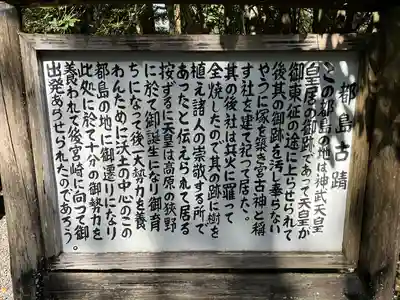 都島古蹟
この都島の地は神武天皇
皇居の御跡であって天皇が
御東征の途に上らせられて
後其の御跡を汚し奉らない
やうに塚を築き宮古神と稱
す社を建て祀って居た。
其の後社は兵火に罹って
全焼したので其の跡に樹を
植え諸人の崇敬する所で
あったと伝えられて居る
按ずるに天皇は高原の狭野
に於て御誕生になり御育
ちになって後一大勢力を養
わんために沃土の中心のこの
都島の地に御遷りになり
此処に於て十分の御勢力を
養われて後宮崎に向って御
出発あらせられたのであろう。